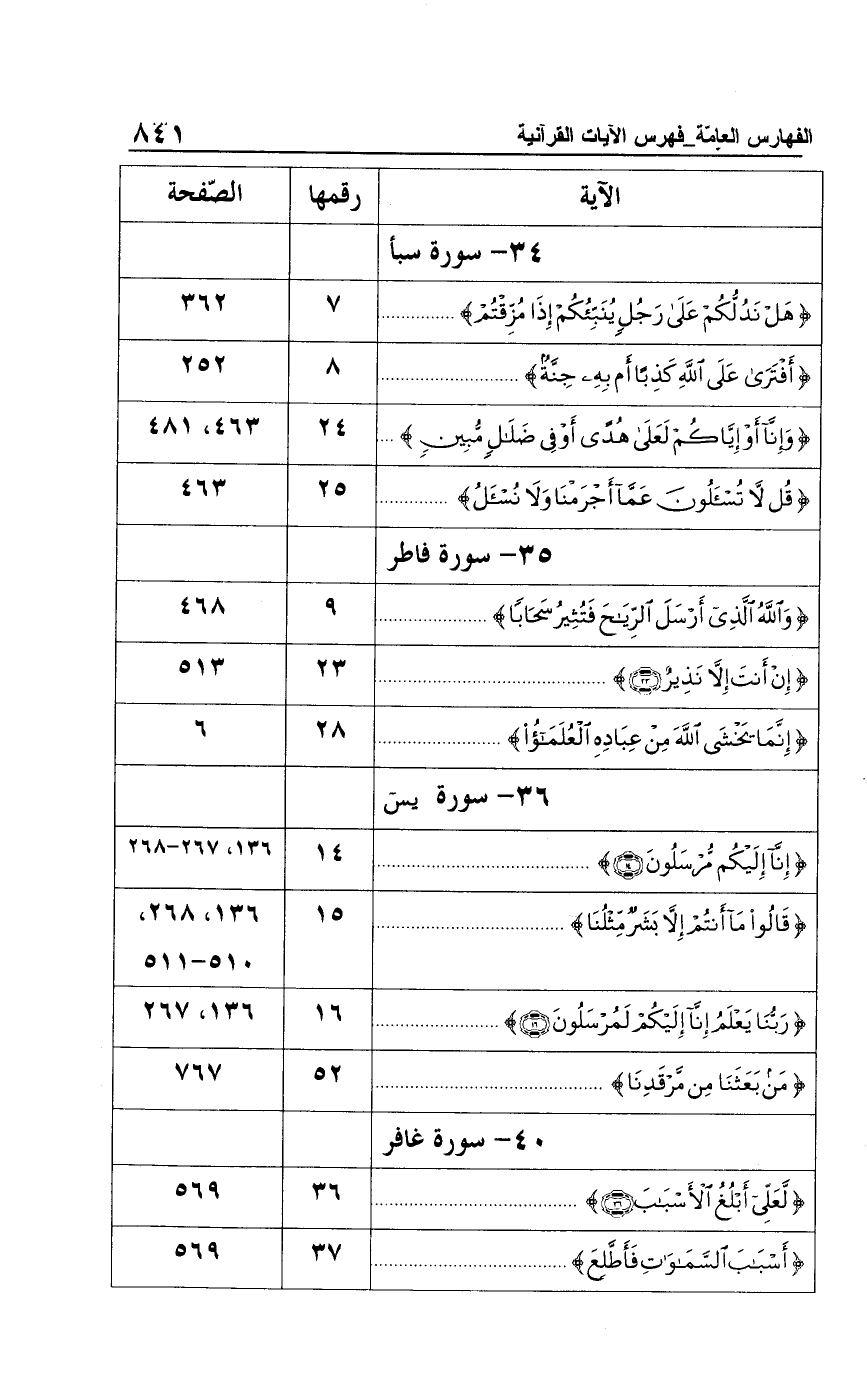 الفهارس العامّة_فهرس الآيات القرآنية ٨٤١
الآية رقمها الصّفحة
٣٤- سورة سبأ
﴿هَلْ نَدُلُّكُمْ عَلَىٰ رَجُلٍ يُنَبِّئُكُمْ إِذَا مُزِّقْتُمْ﴾ .............. ٧ ٣٦٢
﴿أَفْتَرَىٰ عَلَى ٱللَّهِ كَذِبًا أَم بِهِۦ جِنَّةٌۢ﴾ .......................... ٨ ٢٥٢
﴿وَإِنَّآ أَوْ إِيَّاكُمْ لَعَلَىٰ هُدًى أَوْ فِى ضَلَٰلٍ مُّبِينٍ﴾ ... ٢٤ ٤٦٣، ٤٨١
﴿قُل لَّا تُسْـَٔلُونَ عَمَّآ أَجْرَمْنَا وَلَا نُسْـَٔلُ﴾ ............. ٢٥ ٤٦٣
٣٥- سورة فاطر
﴿وَٱللَّهُ ٱلَّذِىٓ أَرْسَلَ ٱلرِّيَٰحَ فَتُثِيرُ سَحَابًا﴾ .................... ٩ ٤٦٨
﴿إِنْ أَنتَ إِلَّا نَذِيرٌ ٢٣﴾ ......................................... ٢٣ ٥١٣
﴿إِنَّمَا يَخْشَى ٱللَّهَ مِنْ عِبَادِهِ ٱلْعُلَمَٰٓؤُا۟﴾ ....................... ٢٨ ٦
٣٦- سورة يسٓ
﴿إِنَّآ إِلَيْكُم مُّرْسَلُونَ ١٤﴾ ....................................... ١٤ ١٣٦، ٢٦٧-٢٦٨
﴿قَالُوا۟ مَآ أَنتُمْ إِلَّا بَشَرٌ مِّثْلُنَا﴾ ................................... ١٥ ١٣٦، ٢٦٨،
٥١٠-٥١١
﴿رَبُّنَا يَعْلَمُ إِنَّآ إِلَيْكُمْ لَمُرْسَلُونَ ١٦﴾ ....................... ١٦ ١٣٦، ٢٦٧
﴿مَنۢ بَعَثَنَا مِن مَّرْقَدِنَا﴾ .......................................... ٥٢ ٧٦٧
٤٠- سورة غافر
﴿لَّعَلِّىٓ أَبْلُغُ ٱلْأَسْبَٰبَ ٣٦﴾ ..................................... ٣٦ ٥٦٩
﴿أَسْبَٰبَ ٱلسَّمَٰوَٰتِ فَأَطَّلِعَ﴾ .................................... ٣٧ ٥٦٩